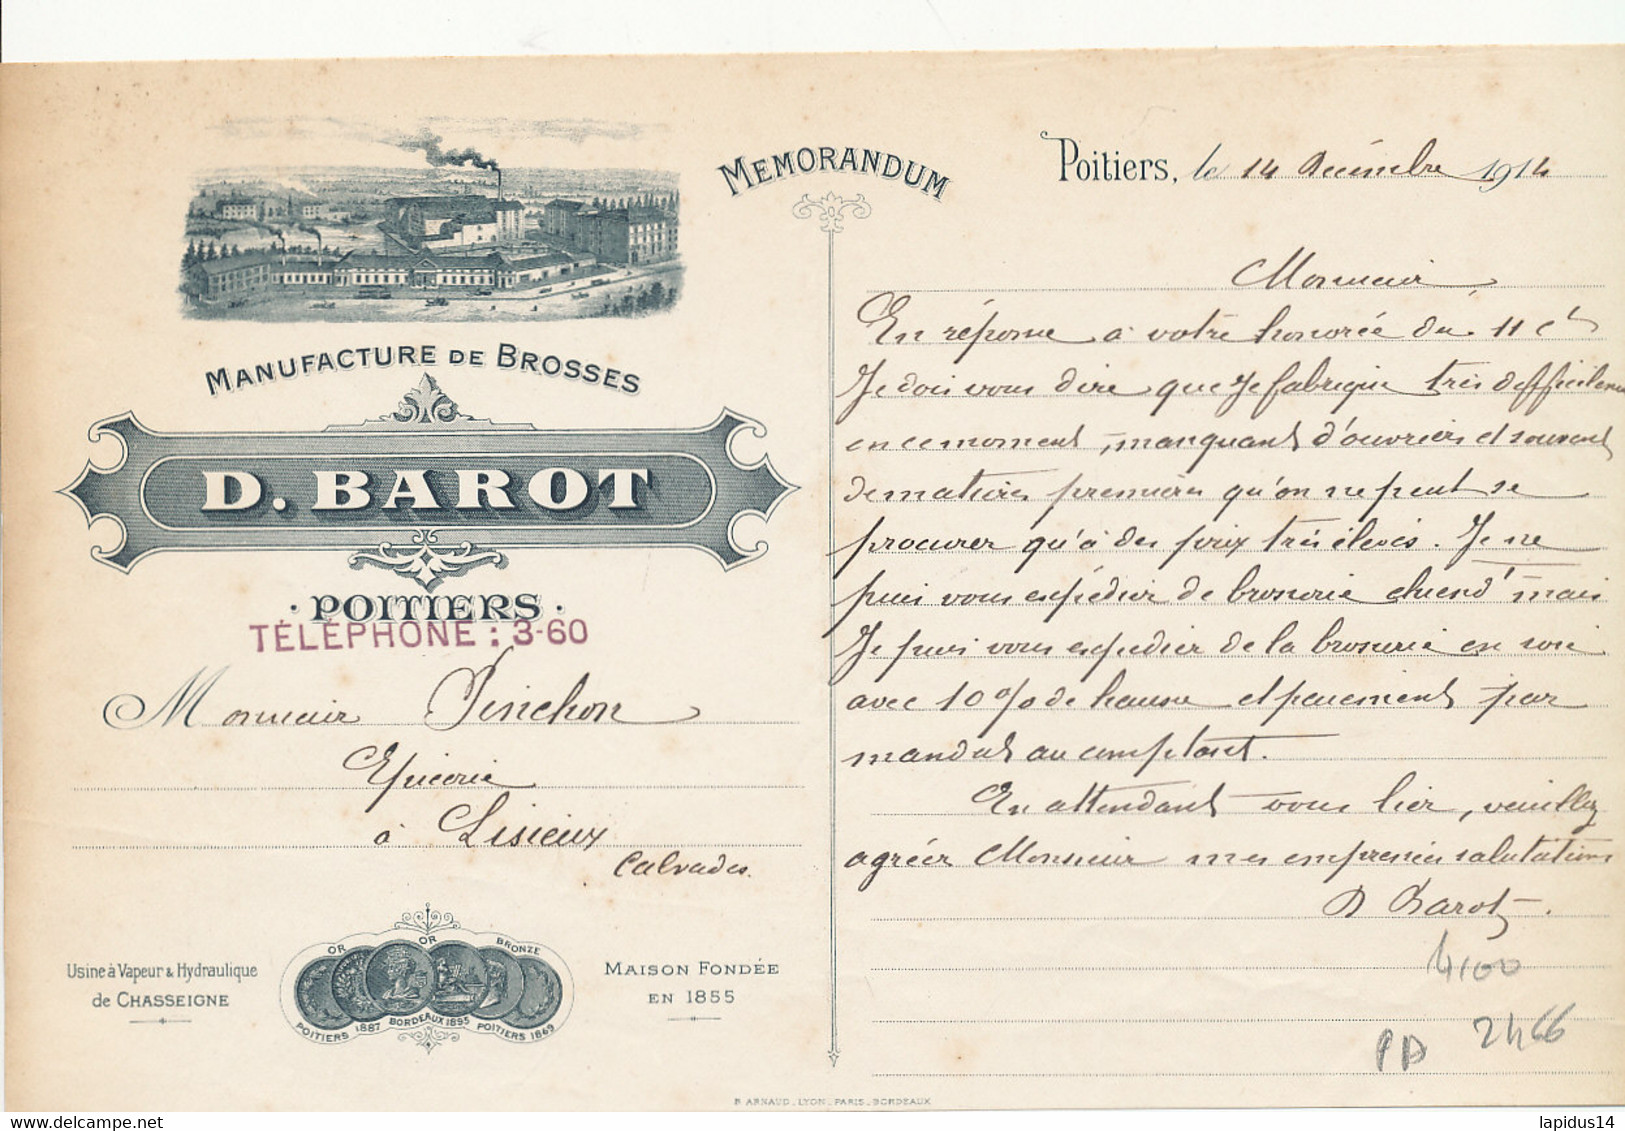 MEMORANDUM
Poitiers, le 14 Décembre 1914
MANUFACTURE DE BROSSES
D. BAROT
POITIERS
TÉLÉPHONE : 3-60
Monsieur
Epicerie
à Lisieux
Calvados.
OR OR BRONZE
POITIERS 1887 BORDEAUX 1895 POITIERS 1869
Usine à Vapeur & Hydraulique
de CHASSEIGNE
MAISON FONDÉE
EN 1855
Monsieur
En réponse à votre honorée du 11 ct
Je dois vous dire que je fabrique très difficilement
en ce moment, manquant d'ouvriers et souvent
de matières premières qu'on ne peut se
procurer qu'à des prix très élevés. Je ne
puis vous expédier de brosserie mais
Je puis vous expédier de la brosserie en soie
avec 10 % de hausse et paiement par
mandat au comptant.
En attendant vous lier, veuillez
agréer Monsieur mes empressées salutations
D Barot.
4100
PD 2466
R. ARNAUD_LYON_PARIS_BORDEAUX
lapidus14